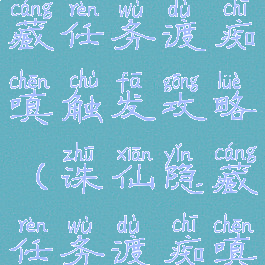 cáng rèn wù dù chī
藏任务渡痴
chēn chù fā gōng lüè
嗔触发攻略
zhū xiān yǐn cáng
（诛仙隐藏
rèn wù dù chī chēn
任务渡痴嗔